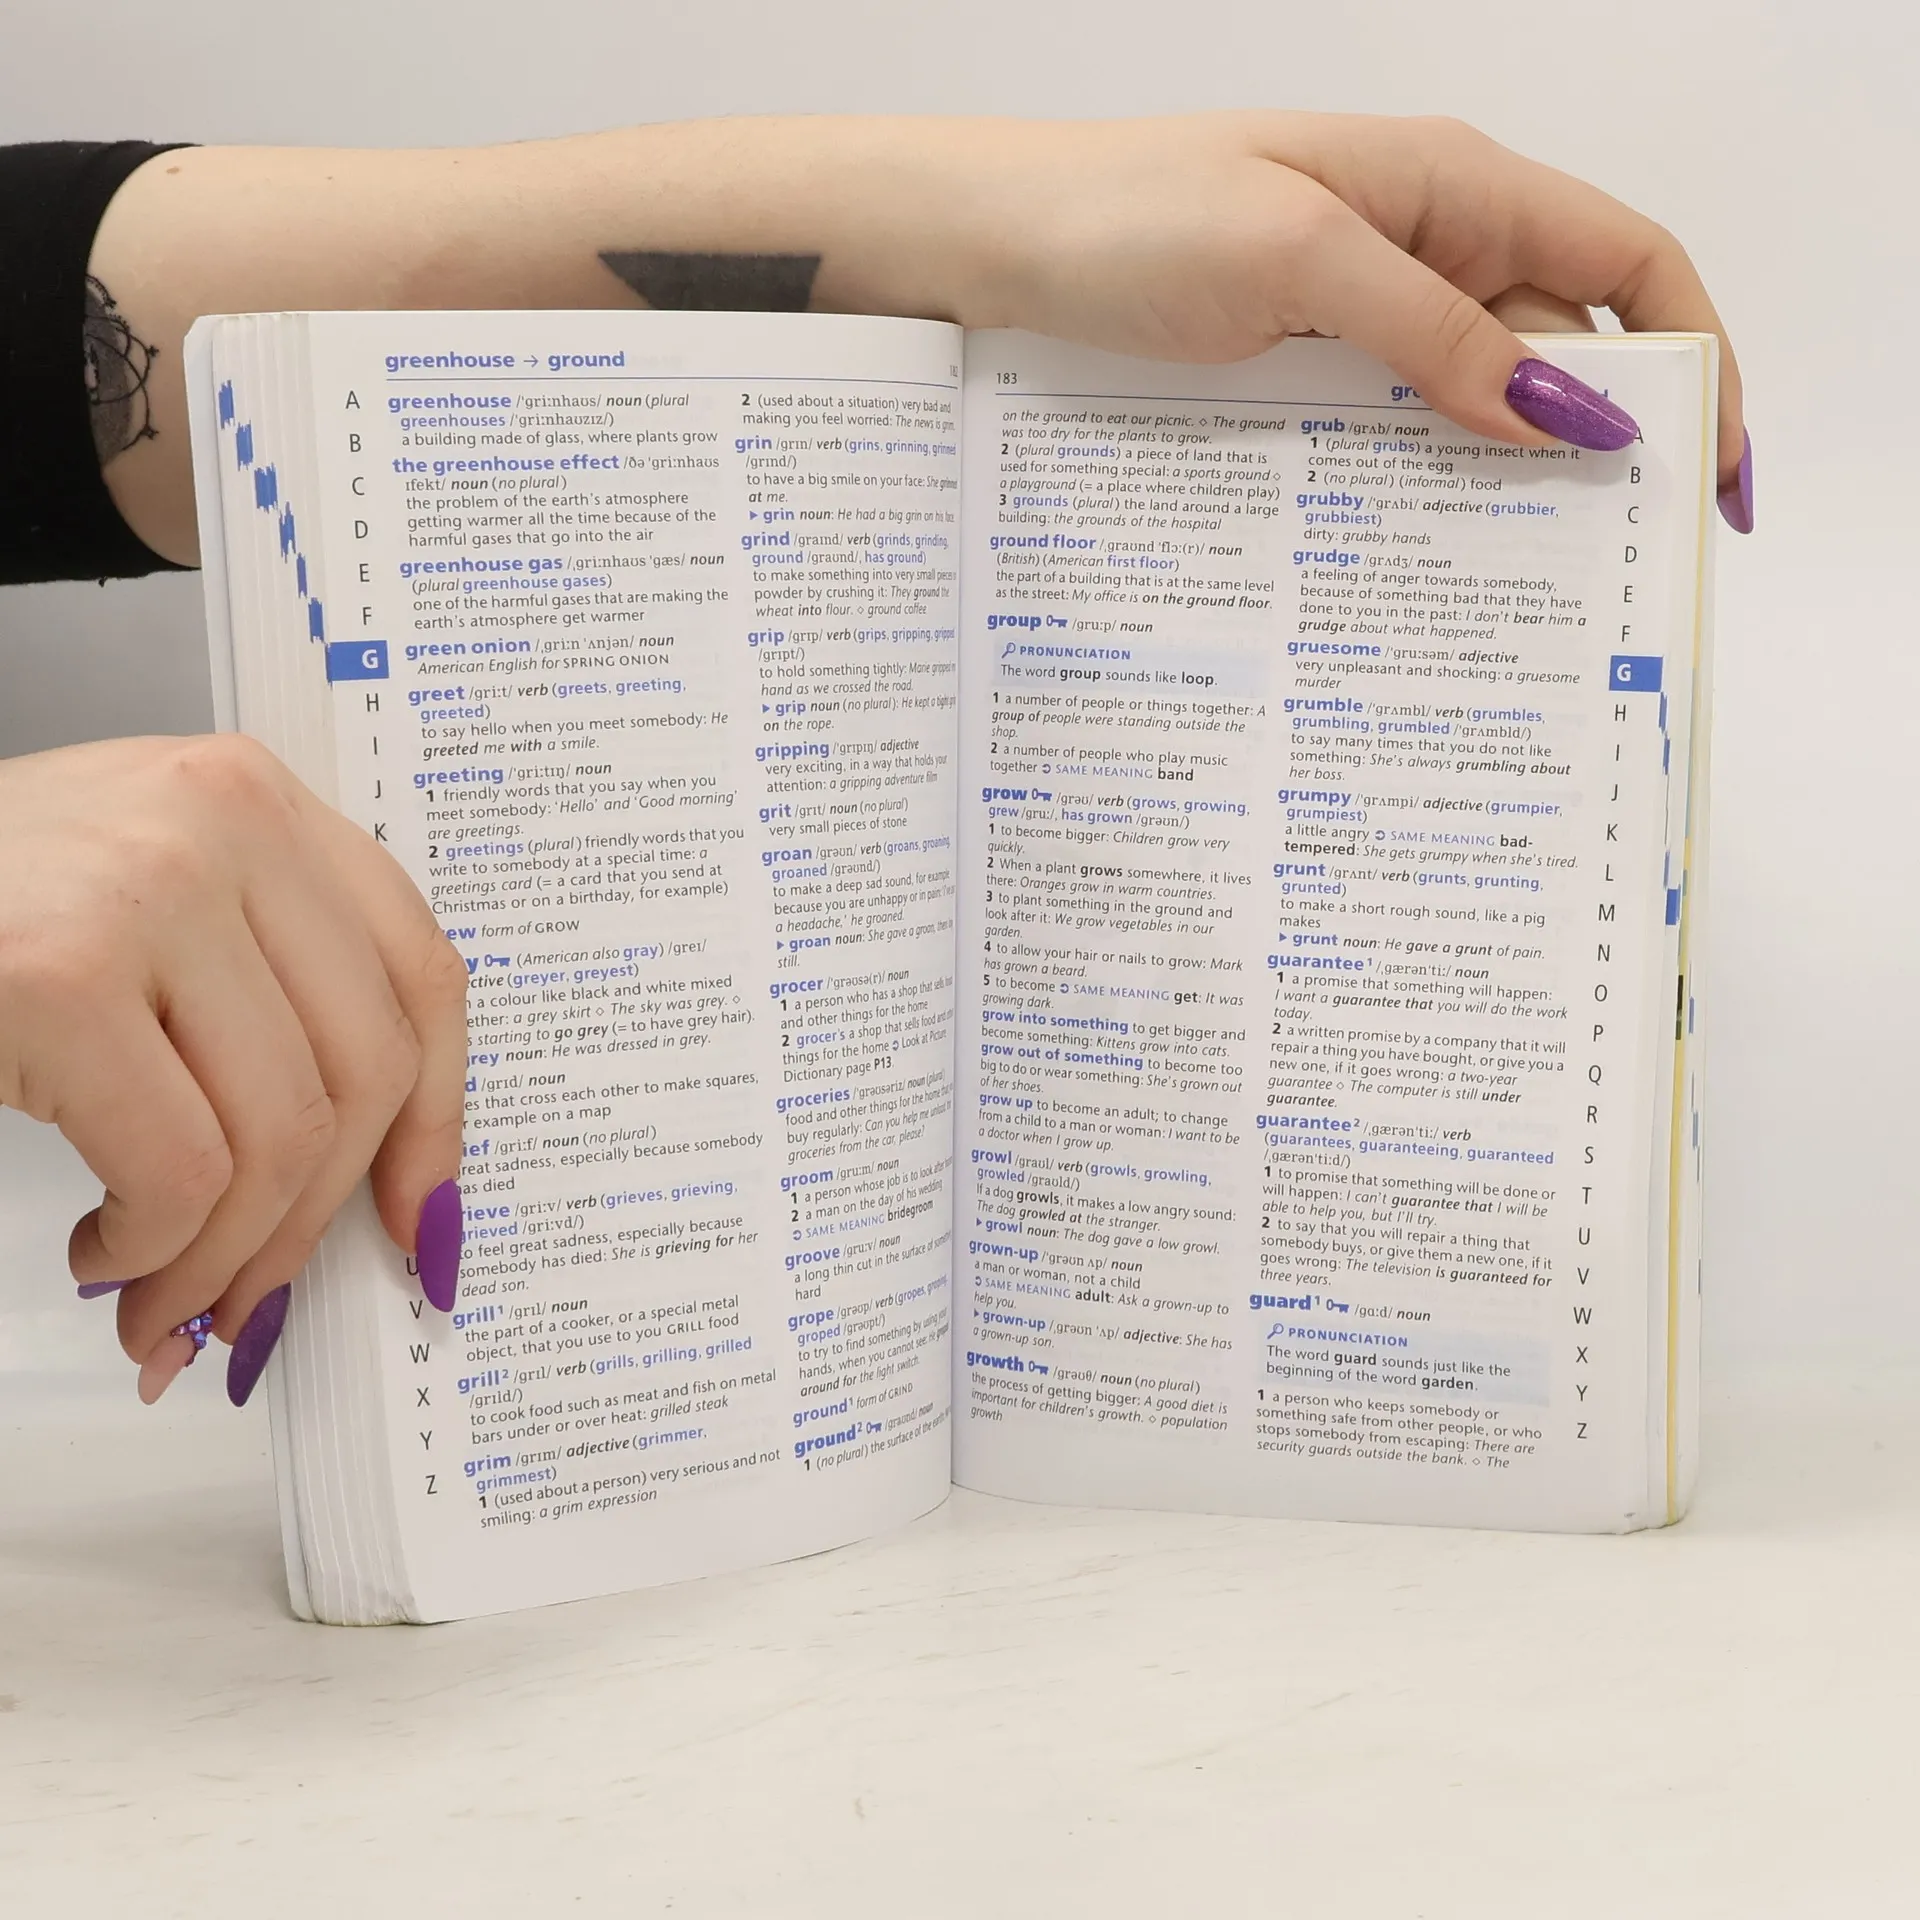 greenhouse → ground
182
A
B
C
D
E
F
G
H
I
J
K
U
V
W
X
Y
Z
greenhouse /ˈɡriːnhaʊs/ noun (plural
greenhouses /ˈɡriːnhaʊzɪz/)
a building made of glass, where plants grow
the greenhouse effect /ðə ˈɡriːnhaʊs
ɪfekt/ noun (no plural)
the problem of the earth's atmosphere
getting warmer all the time because of the
harmful gases that go into the air
greenhouse gas /ˌɡriːnhaʊs ˈɡæs/ noun
(plural greenhouse gases)
one of the harmful gases that are making the
earth's atmosphere get warmer
green onion /ˌɡriːn ˈʌnjən/ noun
American English for SPRING ONION
greet /ɡriːt/ verb (greets, greeting,
greeted)
to say hello when you meet somebody: He
greeted me with a smile.
greeting /ˈɡriːtɪŋ/ noun
1 friendly words that you say when you
meet somebody: 'Hello' and 'Good morning'
are greetings.
2 greetings (plural) friendly words that you
write to somebody at a special time: a
greetings card (= a card that you send at
Christmas or on a birthday, for example)
ew form of GROW
y (American also gray) /ɡreɪ/
ctive (greyer, greyest)
a colour like black and white mixed
ether: a grey skirt ◇ The sky was grey. ◇
s starting to go grey (= to have grey hair).
grey noun: He was dressed in grey.
d /ɡrɪd/ noun
es that cross each other to make squares,
r example on a map
ief /ɡriːf/ noun (no plural)
great sadness, especially because somebody
has died
rieve /ɡriːv/ verb (grieves, grieving,
grieved /ɡriːvd/)
to feel great sadness, especially because
somebody has died: She is grieving for her
dead son.
grill¹ /ɡrɪl/ noun
the part of a cooker, or a special metal
object, that you use to you GRILL food
grill² /ɡrɪl/ verb (grills, grilling, grilled
/ɡrɪld/)
to cook food such as meat and fish on metal
bars under or over heat: grilled steak
grim /ɡrɪm/ adjective (grimmer,
grimmest)
1 (used about a person) very serious and not
smiling: a grim expression
2 (used about a situation) very bad and
making you feel worried: The news is grim.
grin /ɡrɪn/ verb (grins, grinning, grinned
/ɡrɪnd/)
to have a big smile on your face: She grinned
at me.
▶ grin noun: He had a big grin on his face.
grind /ɡraɪnd/ verb (grinds, grinding,
ground /ɡraʊnd/, has ground)
to make something into very small pieces or
powder by crushing it: They ground the
wheat into flour. ◇ ground coffee
grip /ɡrɪp/ verb (grips, gripping, gripped
/ɡrɪpt/)
to hold something tightly: Marie gripped my
hand as we crossed the road.
▶ grip noun (no plural): He kept a tight grip
on the rope.
gripping /ˈɡrɪpɪŋ/ adjective
very exciting, in a way that holds your
attention: a gripping adventure film
grit /ɡrɪt/ noun (no plural)
very small pieces of stone
groan /ɡrəʊn/ verb (groans, groaning,
groaned /ɡrəʊnd/)
to make a deep sad sound, for example
because you are unhappy or in pain: 'I've got
a headache,' he groaned.
▶ groan noun: She gave a groan, then lay
still.
grocer /ˈɡrəʊsə(r)/ noun
1 a person who has a shop that sells food
and other things for the home
2 grocer's a shop that sells food and other
things for the home ➲ Look at Picture
Dictionary page P13.
groceries /ˈɡrəʊsəriz/ noun (plural)
food and other things for the home that you
buy regularly: Can you help me unload the
groceries from the car, please?
groom /ɡruːm/ noun
1 a person whose job is to look after horses
2 a man on the day of his wedding
➲ SAME MEANING bridegroom
groove /ɡruːv/ noun
a long thin cut in the surface of something
hard
grope /ɡrəʊp/ verb (gropes, groping,
groped /ɡrəʊpt/)
to try to find something by using your
hands, when you cannot see: He groped
around for the light switch.
ground¹ form of GRIND
ground² /ɡraʊnd/ noun
1 (no plural) the surface of the earth:
183
gr
on the ground to eat our picnic. ◇ The ground
was too dry for the plants to grow.
2 (plural grounds) a piece of land that is
used for something special: a sports ground ◇
a playground (= a place where children play)
3 grounds (plural) the land around a large
building: the grounds of the hospital
ground floor /ˌɡraʊnd ˈflɔː(r)/ noun
(British) (American first floor)
the part of a building that is at the same level
as the street: My office is on the ground floor.
group /ɡruːp/ noun
PRONUNCIATION
The word group sounds like loop.
1 a number of people or things together: A
group of people were standing outside the
shop.
2 a number of people who play music
together ➲ SAME MEANING band
grow /ɡrəʊ/ verb (grows, growing,
grew /ɡruː/, has grown /ɡrəʊn/)
1 to become bigger: Children grow very
quickly.
2 When a plant grows somewhere, it lives
there: Oranges grow in warm countries.
3 to plant something in the ground and
look after it: We grow vegetables in our
garden.
4 to allow your hair or nails to grow: Mark
has grown a beard.
5 to become ➲ SAME MEANING get: It was
growing dark.
grow into something to get bigger and
become something: Kittens grow into cats.
grow out of something to become too
big to do or wear something: She's grown out
of her shoes.
grow up to become an adult; to change
from a child to a man or woman: I want to be
a doctor when I grow up.
growl /ɡraʊl/ verb (growls, growling,
growled /ɡraʊld/)
If a dog growls, it makes a low angry sound:
The dog growled at the stranger.
▶ growl noun: The dog gave a low growl.
grown-up /ˈɡrəʊn ʌp/ noun
a man or woman, not a child
➲ SAME MEANING adult: Ask a grown-up to
help you.
▶ grown-up /ˌɡrəʊn ˈʌp/ adjective: She has
a grown-up son.
growth /ɡrəʊθ/ noun (no plural)
the process of getting bigger: A good diet is
important for children's growth. ◇ population
growth
grub /ɡrʌb/ noun
1 (plural grubs) a young insect when it
comes out of the egg
2 (no plural) (informal) food
grubby /ˈɡrʌbi/ adjective (grubbier,
grubbiest)
dirty: grubby hands
grudge /ɡrʌdʒ/ noun
a feeling of anger towards somebody,
because of something bad that they have
done to you in the past: I don't bear him a
grudge about what happened.
gruesome /ˈɡruːsəm/ adjective
very unpleasant and shocking: a gruesome
murder
grumble /ˈɡrʌmbl/ verb (grumbles,
grumbling, grumbled /ˈɡrʌmbld/)
to say many times that you do not like
something: She's always grumbling about
her boss.
grumpy /ˈɡrʌmpi/ adjective (grumpier,
grumpiest)
a little angry ➲ SAME MEANING bad-
tempered: She gets grumpy when she's tired.
grunt /ɡrʌnt/ verb (grunts, grunting,
grunted)
to make a short rough sound, like a pig
makes
▶ grunt noun: He gave a grunt of pain.
guarantee¹ /ˌɡærənˈtiː/ noun
1 a promise that something will happen:
I want a guarantee that you will do the work
today.
2 a written promise by a company that it will
repair a thing you have bought, or give you a
new one, if it goes wrong: a two-year
guarantee ◇ The computer is still under
guarantee.
guarantee² /ˌɡærənˈtiː/ verb
(guarantees, guaranteeing, guaranteed
/ˌɡærənˈtiːd/)
1 to promise that something will be done or
will happen: I can't guarantee that I will be
able to help you, but I'll try.
2 to say that you will repair a thing that
somebody buys, or give them a new one, if it
goes wrong: The television is guaranteed for
three years.
guard¹ /ɡɑːd/ noun
PRONUNCIATION
The word guard sounds just like the
beginning of the word garden.
1 a person who keeps somebody or
something safe from other people, or who
stops somebody from escaping: There are
security guards outside the bank. ◇ The
A
B
C
D
E
F
G
H
I
J
K
L
M
N
O
P
Q
R
S
T
U
V
W
X
Y
Z